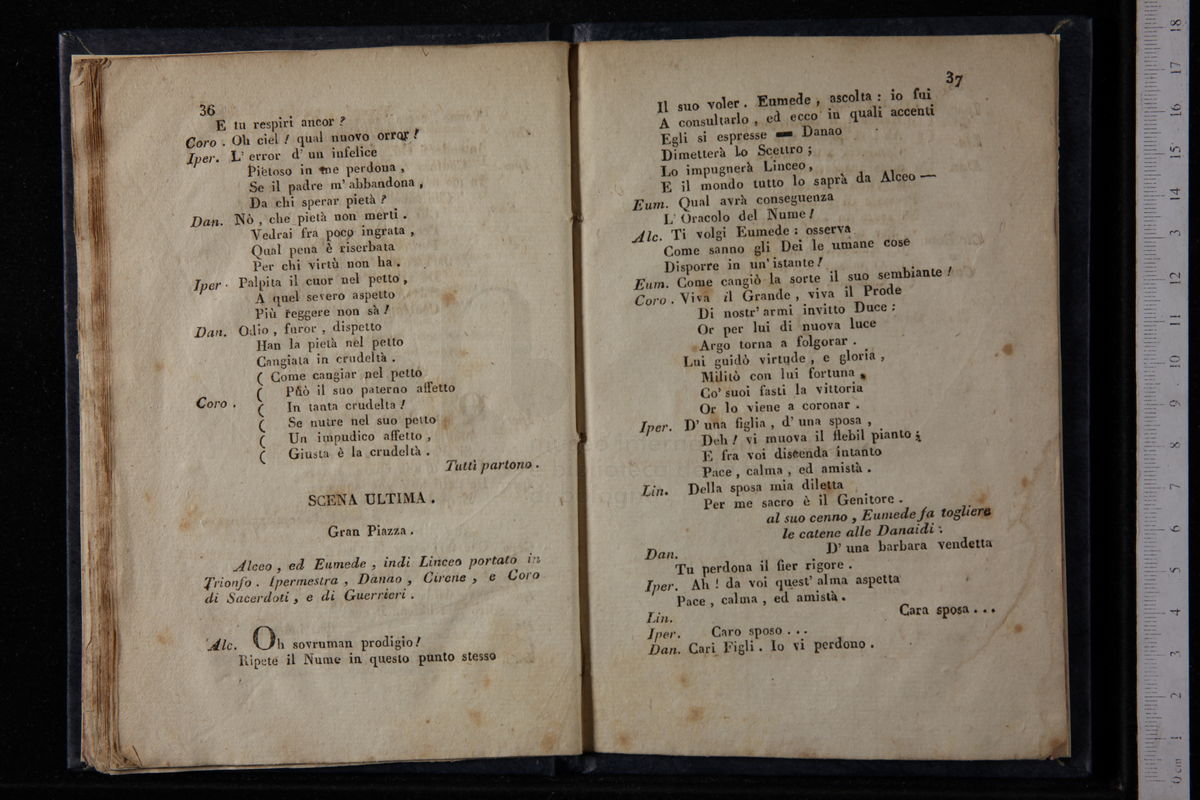 36
E tu respiri ancor ?
Coro . Oh ciel ! qual nuovo orror !
Iper. L' error d' un infelice
Pietoso in me perdona ,
Se il padre m' abbandona ,
Da chi sperar pietà ?
Dan. Nò , che pietà non merti .
Vedrai fra poco ingrata ,
Qual pena è riserbata
Per chi virtù non ha .
Iper . Palpita il cuor nel petto ,
A quel severo aspetto
Più reggere non sà !
Dan. Odio , furor , dispetto
Han la pietà nel petto
Cangiata in crudeltà .
( Come cangiar nel petto
( Può il suo paterno affetto
Coro . ( In tanta crudelta !
( Se nutre nel suo petto
( Un impudico affetto ,
( Giusta è la crudeltà .
Tutti partono .
SCENA ULTIMA .
Gran Piazza .
Alceo , ed Eumede , indi Linceo portato in
Trionfo . Ipermestra , Danao , Cirene , e Coro
di Sacerdoti , e di Guerrieri .
Alc. Oh sovruman prodigio !
Ripete il Nume in questo punto stesso
37
Il suo voler . Eumede , ascolta : io fui
A consultarlo , ed ecco in quali accenti
Egli si espresse — Danao
Dimetterà lo Scettro ;
Lo impugnerà Linceo ,
E il mondo tutto lo saprà da Alceo —
Eum. Qual avrà conseguenza
L' Oracolo del Nume !
Alc. Ti volgi Eumede : osserva
Come sanno gli Dei le umane cose
Disporre in un' istante !
Eum. Come cangiò la sorte il suo sembiante !
Coro . Viva il Grande , viva il Prode
Di nostr' armi invitto Duce :
Or per lui di nuova luce
Argo torna a folgorar .
Lui guidò virtude , e gloria ,
Militò con lui fortuna ,
Co' suoi fasti la vittoria
Or lo viene a coronar .
Iper. D' una figlia , d' una sposa ,
Deh ! vi muova il flebil pianto ;
E fra voi discenda intanto
Pace , calma , ed amistà .
Lin. Della sposa mia diletta
Per me sacro è il Genitore .
al suo cenno , Eumede fa togliere
le catene alle Danaidi .
Dan. D' una barbara vendetta
Tu perdona il fier rigore .
Iper. Ah ! da voi quest' alma aspetta
Pace , calma , ed amistà .
Lin. Cara sposa . . .
Iper. Caro sposo . . .
Dan. Cari Figli . Io vi perdono .